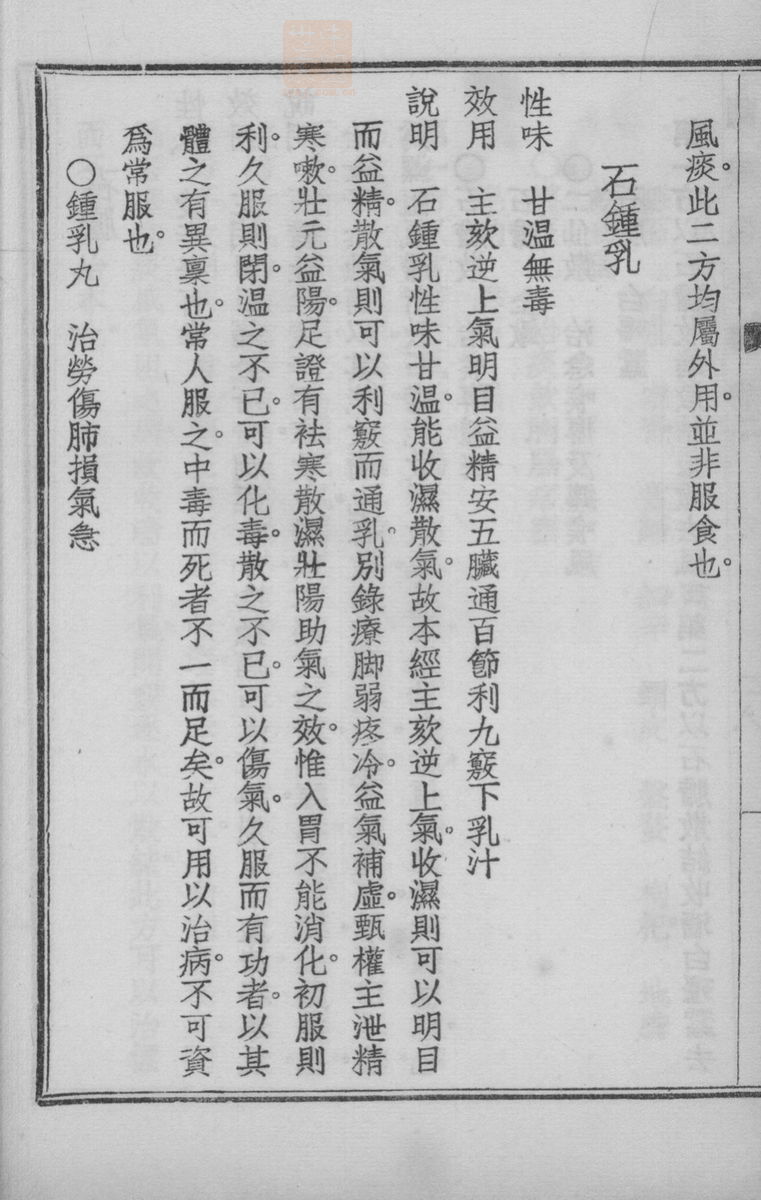 風痰。此二方均屬外用。並非服食也。
石鍾乳
性味　甘温無毒
效用　主欬逆上氣明目益精安五臟通百節利九竅下乳汁
說明　石鍾乳性味甘温。能收濕散氣。故本經主欬逆上氣。收濕則可以明目
而益精。散氣則可以利竅而通乳。別錄療脚弱疼冷。益氣補虛。甄權主泄精
寒嗽。壯元益陽。足證有祛寒散濕壯陽助氣之效。惟入胃不能消化。初服則
利。久服則閉。温之不已。可以化毒。散之不已。可以傷氣。久服而有功者。以其
體之有異稟也。常人服之。中毒而死者不一而足矣。故可用以治病。不可資
爲常服也。
〇鍾乳丸　治勞傷肺損氣急